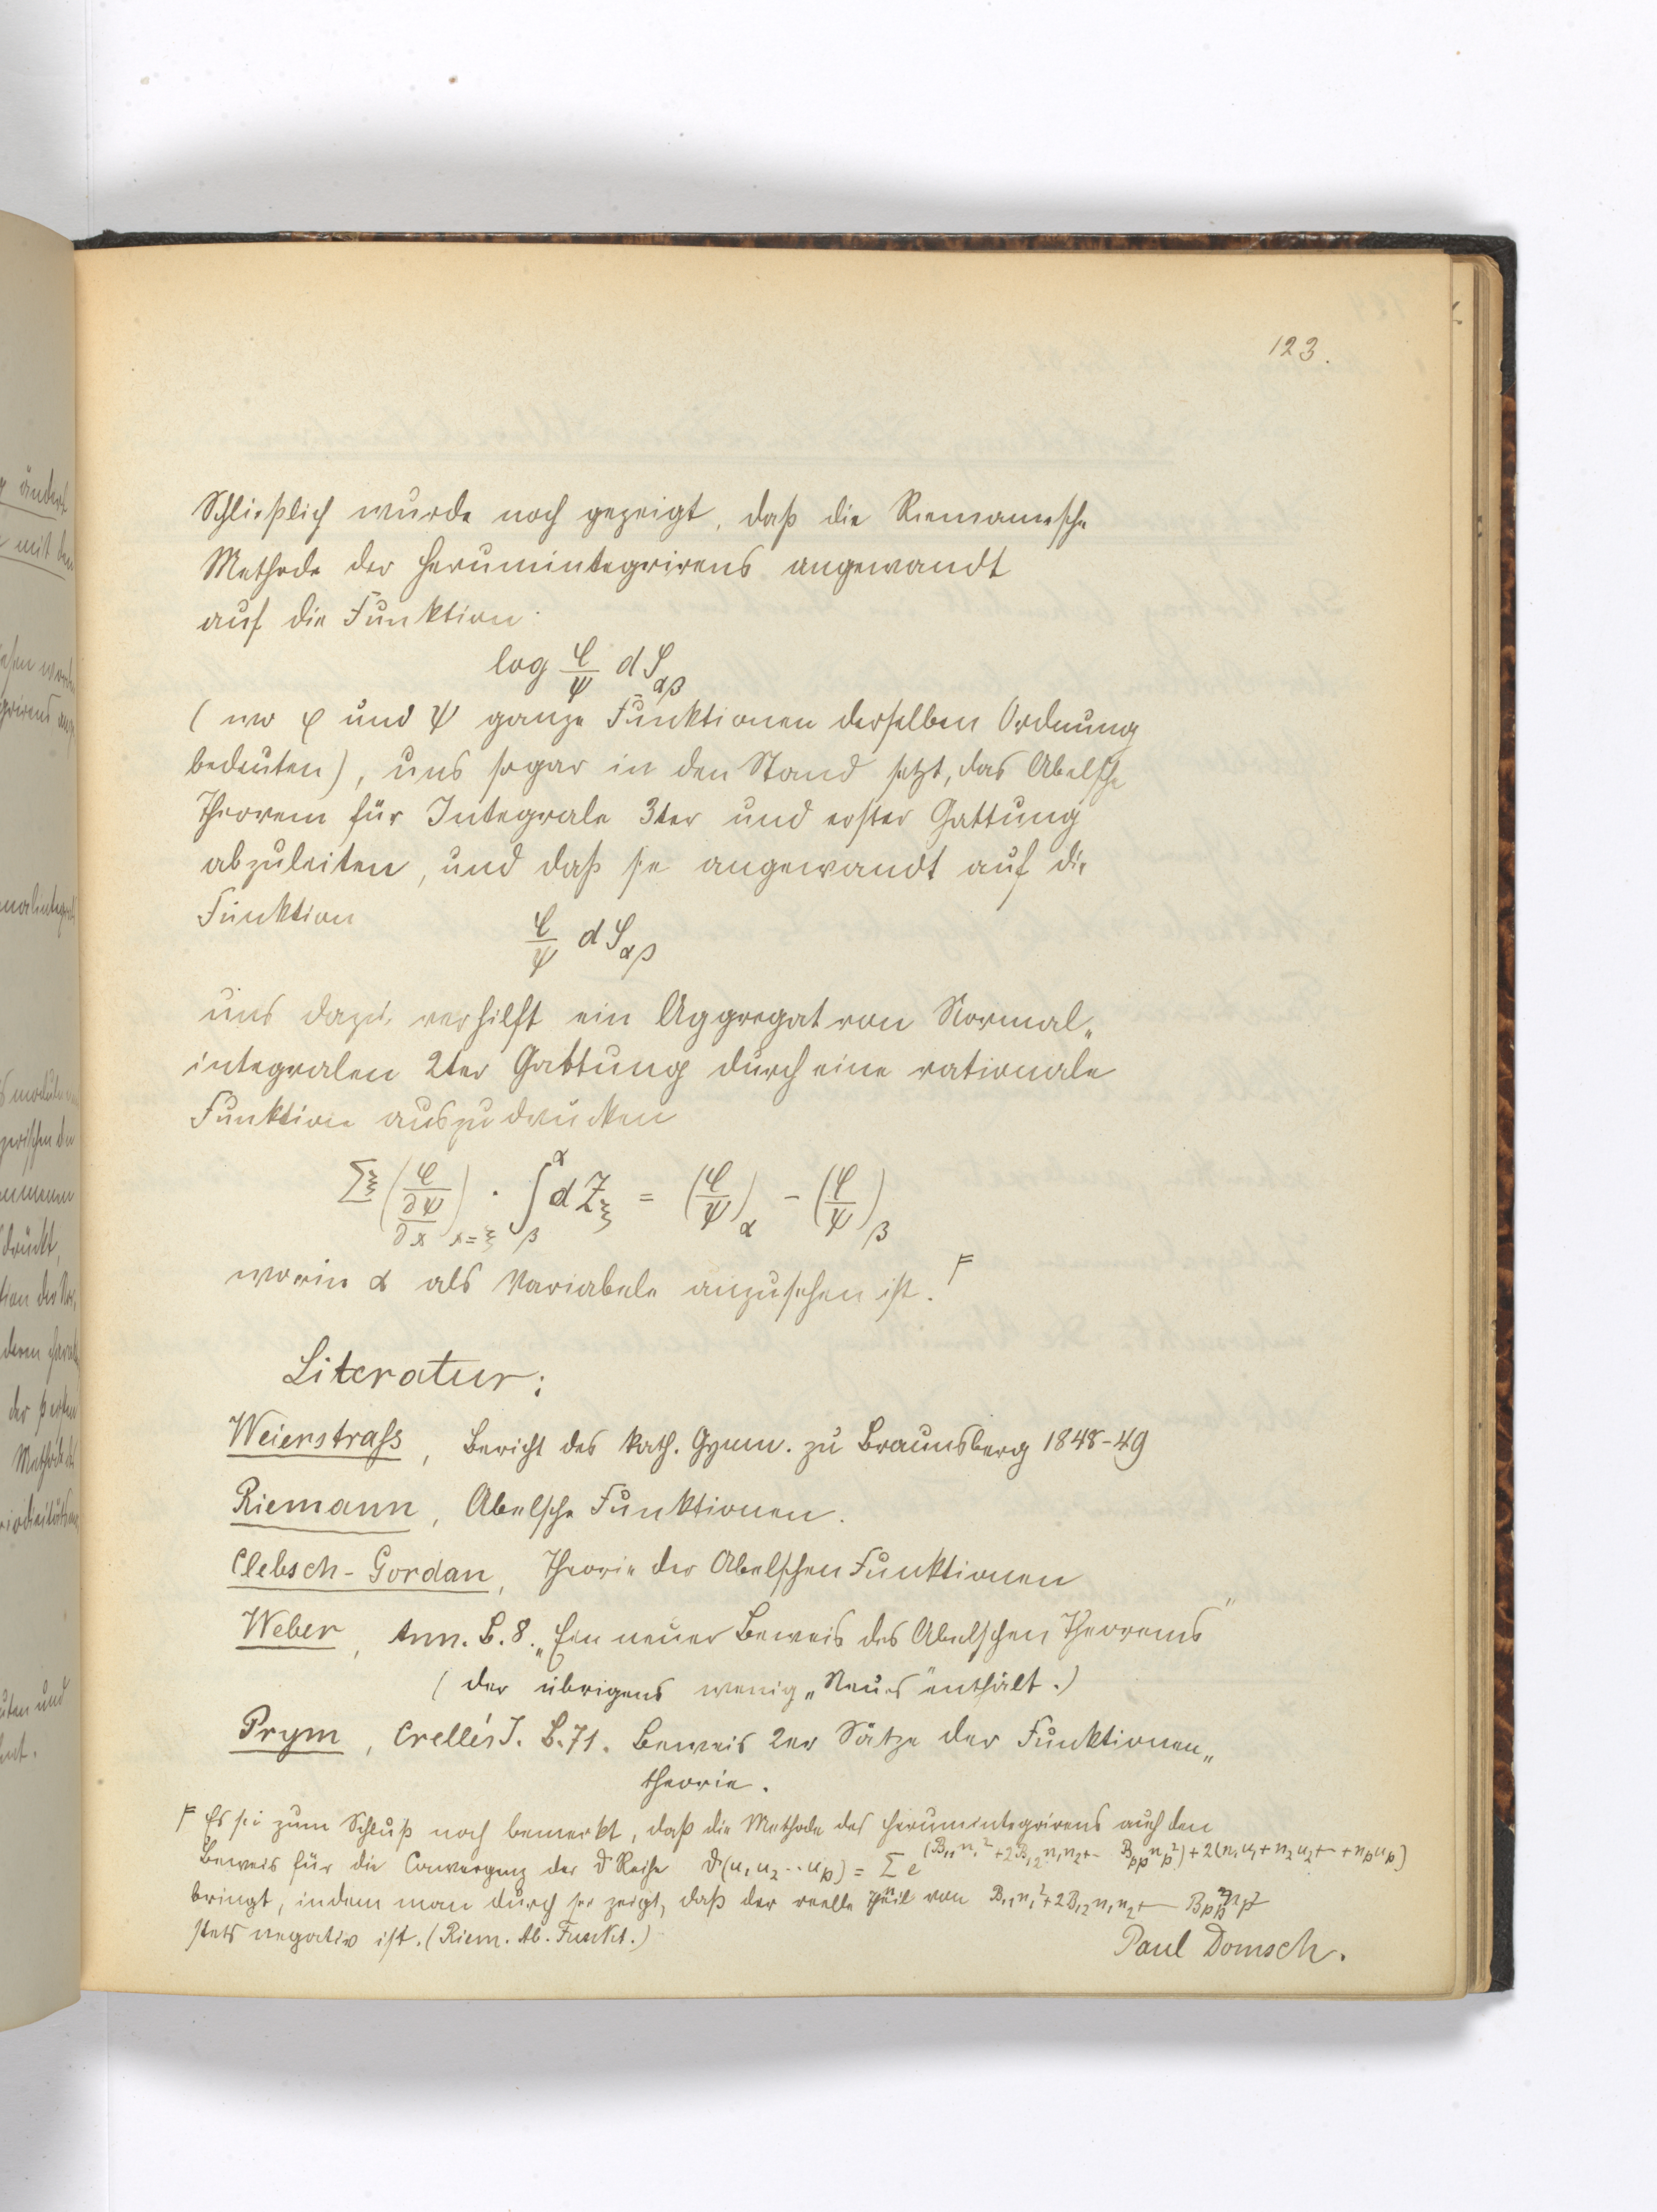 123.
Schließlich wurde noch gezeigt, daß die Riemannsche
Methode des Herumintegrirens angewandt
auf die Funktion:
log φ/ψ dS_αβ
(wo φ und ψ ganze Funktionen derselben Ordnung
bedeuten), uns sogar in den Stand setzt, das Abelsche
Theorem für Integrale 3ter und erster Gattung
abzuleiten, und daß sie angewandt auf die
Funktion
φ/ψ dS_αβ
uns dazu verhilft ein Aggregat von Normal„
integralen 2ter Gattung durch eine rationale
Funktion auszudrücken
Σ_ξ (φ/(∂ψ/∂x))_{x=ξ} · ∫_β^α dZ_ξ = (φ/ψ)_α − (φ/ψ)_β
worin α als Variabele anzusehen ist. F
Literatur:
Weierstrass, Bericht des kath. Gymn. zu Braunsberg 1848-49
Riemann, Abelsche Funktionen.
Clebsch-Gordan, Theorie der Abelschen Funktionen
Weber, Ann. B. 8. „Ein neuer Beweis des Abelschen Theorems"
(der übrigens wenig „Neues" enthält.)
Prym, Crelle's J. B. 71. Beweis 2er Sätze der Funktionen„
theorie.
F Es sei zum Schluß noch bemerkt, daß die Methode des Herumintegrirens auch den
Beweis für die Convergenz der ϑ Reihe ϑ(u₁ u₂ ·· u_p) = Σ e^{(B₁₁n₁² + 2B₁₂n₁n₂ + - B_pp n_p²) + 2(n₁u₁ + n₂u₂ + - + n_p u_p)}
bringt, indem man durch sie zeigt, daß der reelle Theil von B₁₁n₁² + 2B₁₂n₁n₂ + - B_pp n_p²
stets negativ ist. (Riem. Ab. Funkt.)
Paul Domsch.